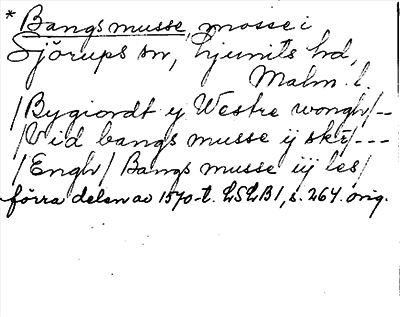 * Bangs musse, mosse i
Sjörups sn, Ljunits hd,
Malm. l.
/Bygiordt ij Westre wongh/--
/Vid bangs musse ij skr/---
/Engh/ Bangs musse iij les/
förra delen av 1570-t. LSLB1, s. 264. orig.